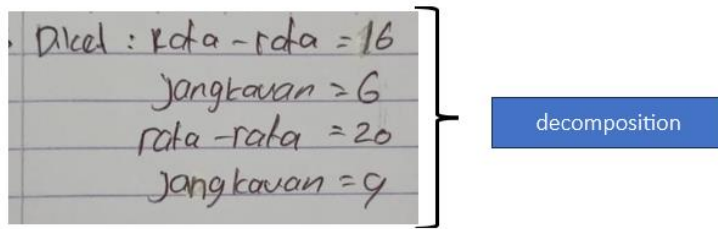 Diket : Rata-rata = 16
jangkauan = 6
rata-rata = 20
jangkauan = 9
decomposition